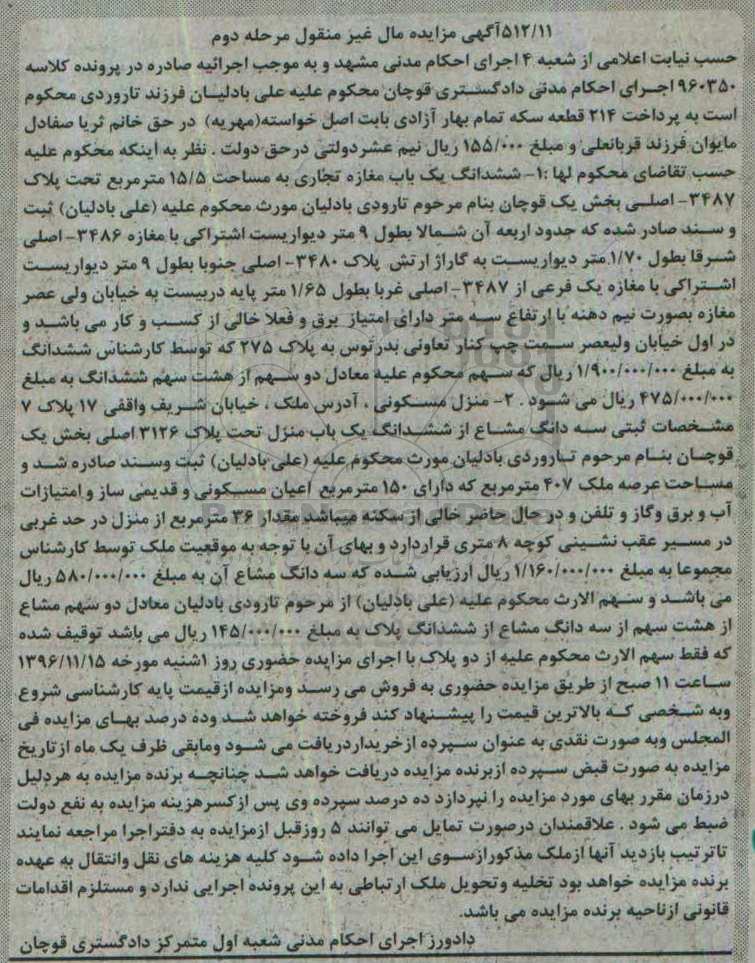 ۵۱۲/۱۱آگهی مزایده مال غیر منقول مرحله دوم
حسب نیابت اعلامی از شعبه ۴ اجرای احکام مدنی مشهد و به موجب اجرائیه صادره در پرونده کلاسه
۹۶۰۳۵۰ اجرای احکام مدنی دادگستری قوچان محکوم علیه علی بادلیان فرزند تاروردی محکوم
است به پرداخت ۲۱۴ قطعه سکه تمام بهار آزادی بابت اصل خواسته(مهریه) در حق خانم ثریا صفادل
مایوان فرزند قربانعلی و مبلغ ۱۵۵/۰۰۰ ریال نیم عشردولتی درحق دولت . نظر به اینکه محکوم علیه
حسب تقاضای محکوم لها :۱- ششدانگ یک باب مغازه تجاری به مساحت ۱۵/۵ مترمربع تحت پلاک
۳۴۸۷- اصلی بخش یک قوچان بنام مرحوم تارودی بادلیان مورث محکوم علیه (علی بادلیان) ثبت
و سند صادر شده که حدود اربعه آن شمالا بطول ۹ متر دیواریست اشتراکی با مغازه ۳۴۸۶- اصلی
شرقا بطول ۱/۷۰ متر دیواریست به گاراژ ارتش پلاک ۳۴۸۰- اصلی جنوبا بطول ۹ متر دیواریست
اشتراکی با مغازه یک فرعی از ۳۴۸۷- اصلی غربا بطول ۱/۶۵ متر پایه دربیست به خیابان ولی عصر
مغازه بصورت نیم دهنه با ارتفاع سه متر دارای امتیاز برق و فعلا خالی از کسب و کار می باشد و
در اول خیابان ولیعصر سمت چپ کنار تعاونی بدرتوس به پلاک ۲۷۵ که توسط کارشناس ششدانگ
به مبلغ ۱/۹۰۰/۰۰۰/۰۰۰ ریال که سهم محکوم علیه معادل دو سهم از هشت سهم ششدانگ به مبلغ
۴۷۵/۰۰۰/۰۰۰ ریال می شود . ۲- منزل مسکونی ، آدرس ملک ، خیابان شریف واقفی ۱۷ پلاک ۷
مشخصات ثبتی سه دانگ مشاع از ششدانگ یک باب منزل تحت پلاک ۳۱۲۶ اصلی بخش یک
قوچان بنام مرحوم تاروردی بادلیان مورث محکوم علیه (علی بادلیان) ثبت وسند صادره شد و
مساحت عرصه ملک ۴۰۷ مترمربع که دارای ۱۵۰ مترمربع اعیان مسکونی و قدیمی ساز و امتیازات
آب و برق وگاز و تلفن و در حال حاضر خالی از سکنه میباشد مقدار ۳۶ مترمربع از منزل در حد غربی
در مسیر عقب نشینی کوچه ۸ متری قراردارد و بهای آن با توجه به موقعیت ملک توسط کارشناس
مجموعا به مبلغ ۱/۱۶۰/۰۰۰/۰۰۰ ریال ارزیابی شده که سه دانگ مشاع آن به مبلغ ۵۸۰/۰۰۰/۰۰۰ ریال
می باشد و سهم الارث محکوم علیه (علی بادلیان) از مرحوم تارودی بادلیان معادل دو سهم مشاع
از هشت سهم از سه دانگ مشاع از ششدانگ پلاک به مبلغ ۱۴۵/۰۰۰/۰۰۰ ریال می باشد توقیف شده
که فقط سهم الارث محکوم علیه از دو پلاک با اجرای مزایده حضوری روز ۱شنبه مورخه ۱۳۹۶/۱۱/۱۵
ساعت ۱۱ صبح از طریق مزایده حضوری به فروش می رسد ومزایده ازقیمت پایه کارشناسی شروع
وبه شخصی که بالاترین قیمت را پیشنهاد کند فروخته خواهد شد وده درصد بهای مزایده فی
المجلس وبه صورت نقدی به عنوان سپرده ازخریداردریافت می شود ومابقی ظرف یک ماه ازتاریخ
مزایده به صورت قبض سپرده ازبرنده مزایده دریافت خواهد شد چنانچه برنده مزایده به هردلیل
درزمان مقرر بهای مورد مزایده را نپردازد ده درصد سپرده وی پس ازکسرهزینه مزایده به نفع دولت
ضبط می شود . علاقمندان درصورت تمایل می توانند ۵ روزقبل ازمزایده به دفتراجرا مراجعه نمایند
تاترتیب بازدید آنها ازملک مذکورازسوی این اجرا داده شود کلیه هزینه های نقل وانتقال به عهده
برنده مزایده خواهد بود تخلیه وتحویل ملک ارتباطی به این پرونده اجرایی ندارد و مستلزم اقدامات
قانونی ازناحیه برنده مزایده می باشد.
دادورز اجرای احکام مدنی شعبه اول متمرکز دادگستری قوچان